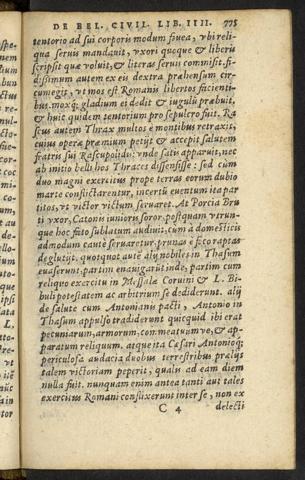 DE BEL. CIVIL. LIB. IIII. 775
tentorio ad sui corporis modum fiuea, vbi reli-
qua seruis mandauit, vxori quoque & liberis
scripsit quæ voluit, & literas seruis commisit. fi-
dissimum autem ex eis dextra præhensum cir-
cumegit, vt mos est Romanis libertos facienti-
bus. moxq; gladium ei dedit & iugulū præbuit,
& huic quidem tentorium pro sepulcro fuit. Ra
scus autem Thrax multos e montibus retraxit,
cuius operæ præmium petijt & accepit salutem
fratris sui Rascupolidis: vnde satis apparuit, nec
ab initio belli hos Thraces dissensisse: sed cum
duo magni exercitus prope terras eorum dubio
marte conflictarentur, incertū euentum ita par
titos, vt victor victum seruaret. At Porcia Bru
ti vxor, Catonis iunioris soror, postquam vtrun-
que hoc fato sublatum audiuit, cum a domesticis
admodum caute seruaretur, prunas e foco raptas
deglutijt. quotquot autē alij nobiles in Thasum
euaserunt, partim enauigarūt inde, partim cum
reliquo exercitu in Messalæ Coruini & L. Bi-
buli potestatem ac arbitrium se dediderunt. alij
de salute cum Antonianis pacti, Antonio in
Thasum appulso tradiderunt quicquid ibi erat
pecuniarum, armorum, commeatuum ve, & ap-
paratum reliquum. atque ita Cæsari Antonioq;
periculosa audacia duobus terrestribus prælijs
talem victoriam peperit, qualis ad eam diem
nulla fuit. nunquam enim antea tanti aut tales
exercitus Romani conflixerunt inter se, non ex
C 4 delecti